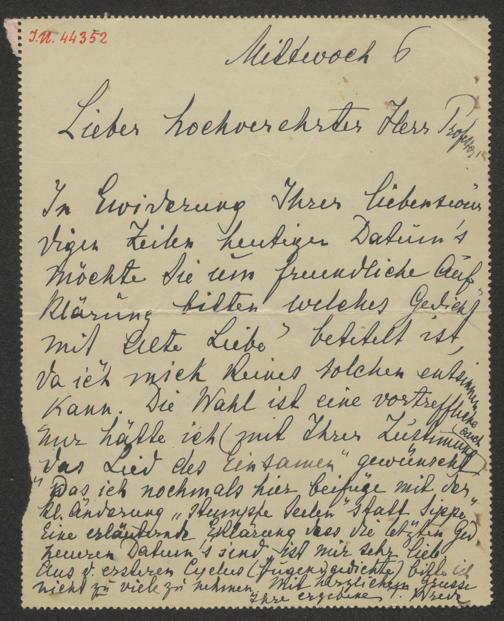 I.N. 44352
Mittwoch 6
Lieber hochverehrter Herr Professor
In Erwiderung Ihrer liebenswür
digen Zeilen heutigen Datum's
möchte Sie um freundliche Auf
klärung bitten welches Gedicht
mit "Alte Liebe" betitelt ist,
da ich mich keines solchen entsinnen
kann. Die Wahl ist eine vortreffliche
nur hätte ich (mit Ihrer Zustimmung
"das Lied des Einsamen" gewünscht
das ich nochmals hier beifüge mit der
kl. Änderung "stumpfe Seelen" statt Sippe
Eine erläuternde Erklärung dass die letzten Ged
neueren Datum's sind, ist mir sehr lieb
Aus d. ersteren Cyclus (Jugendgedichte) bitte ich
nicht zu viele zu nehmen. Mit herzlichem Grusse
Ihre ergebene